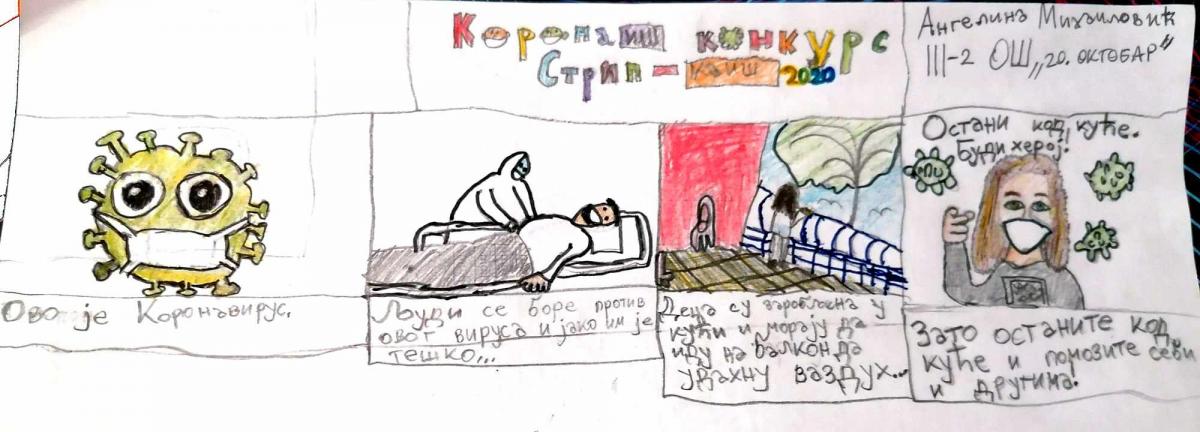 Корона иш конкурс
Стрип - каиш 2020
Ангелина Михаиловић
III-2 ОШ „20. октобар"
Ово је Коронавирус.
Људи се боре против
овог вируса и јако им је
тешко...
Деца су заробљена у
кући и морају да
иду на балкон да
удахну ваздух...
Остани код куће.
Буди херој.
Зато останите код
куће и помозите себи
и другима.